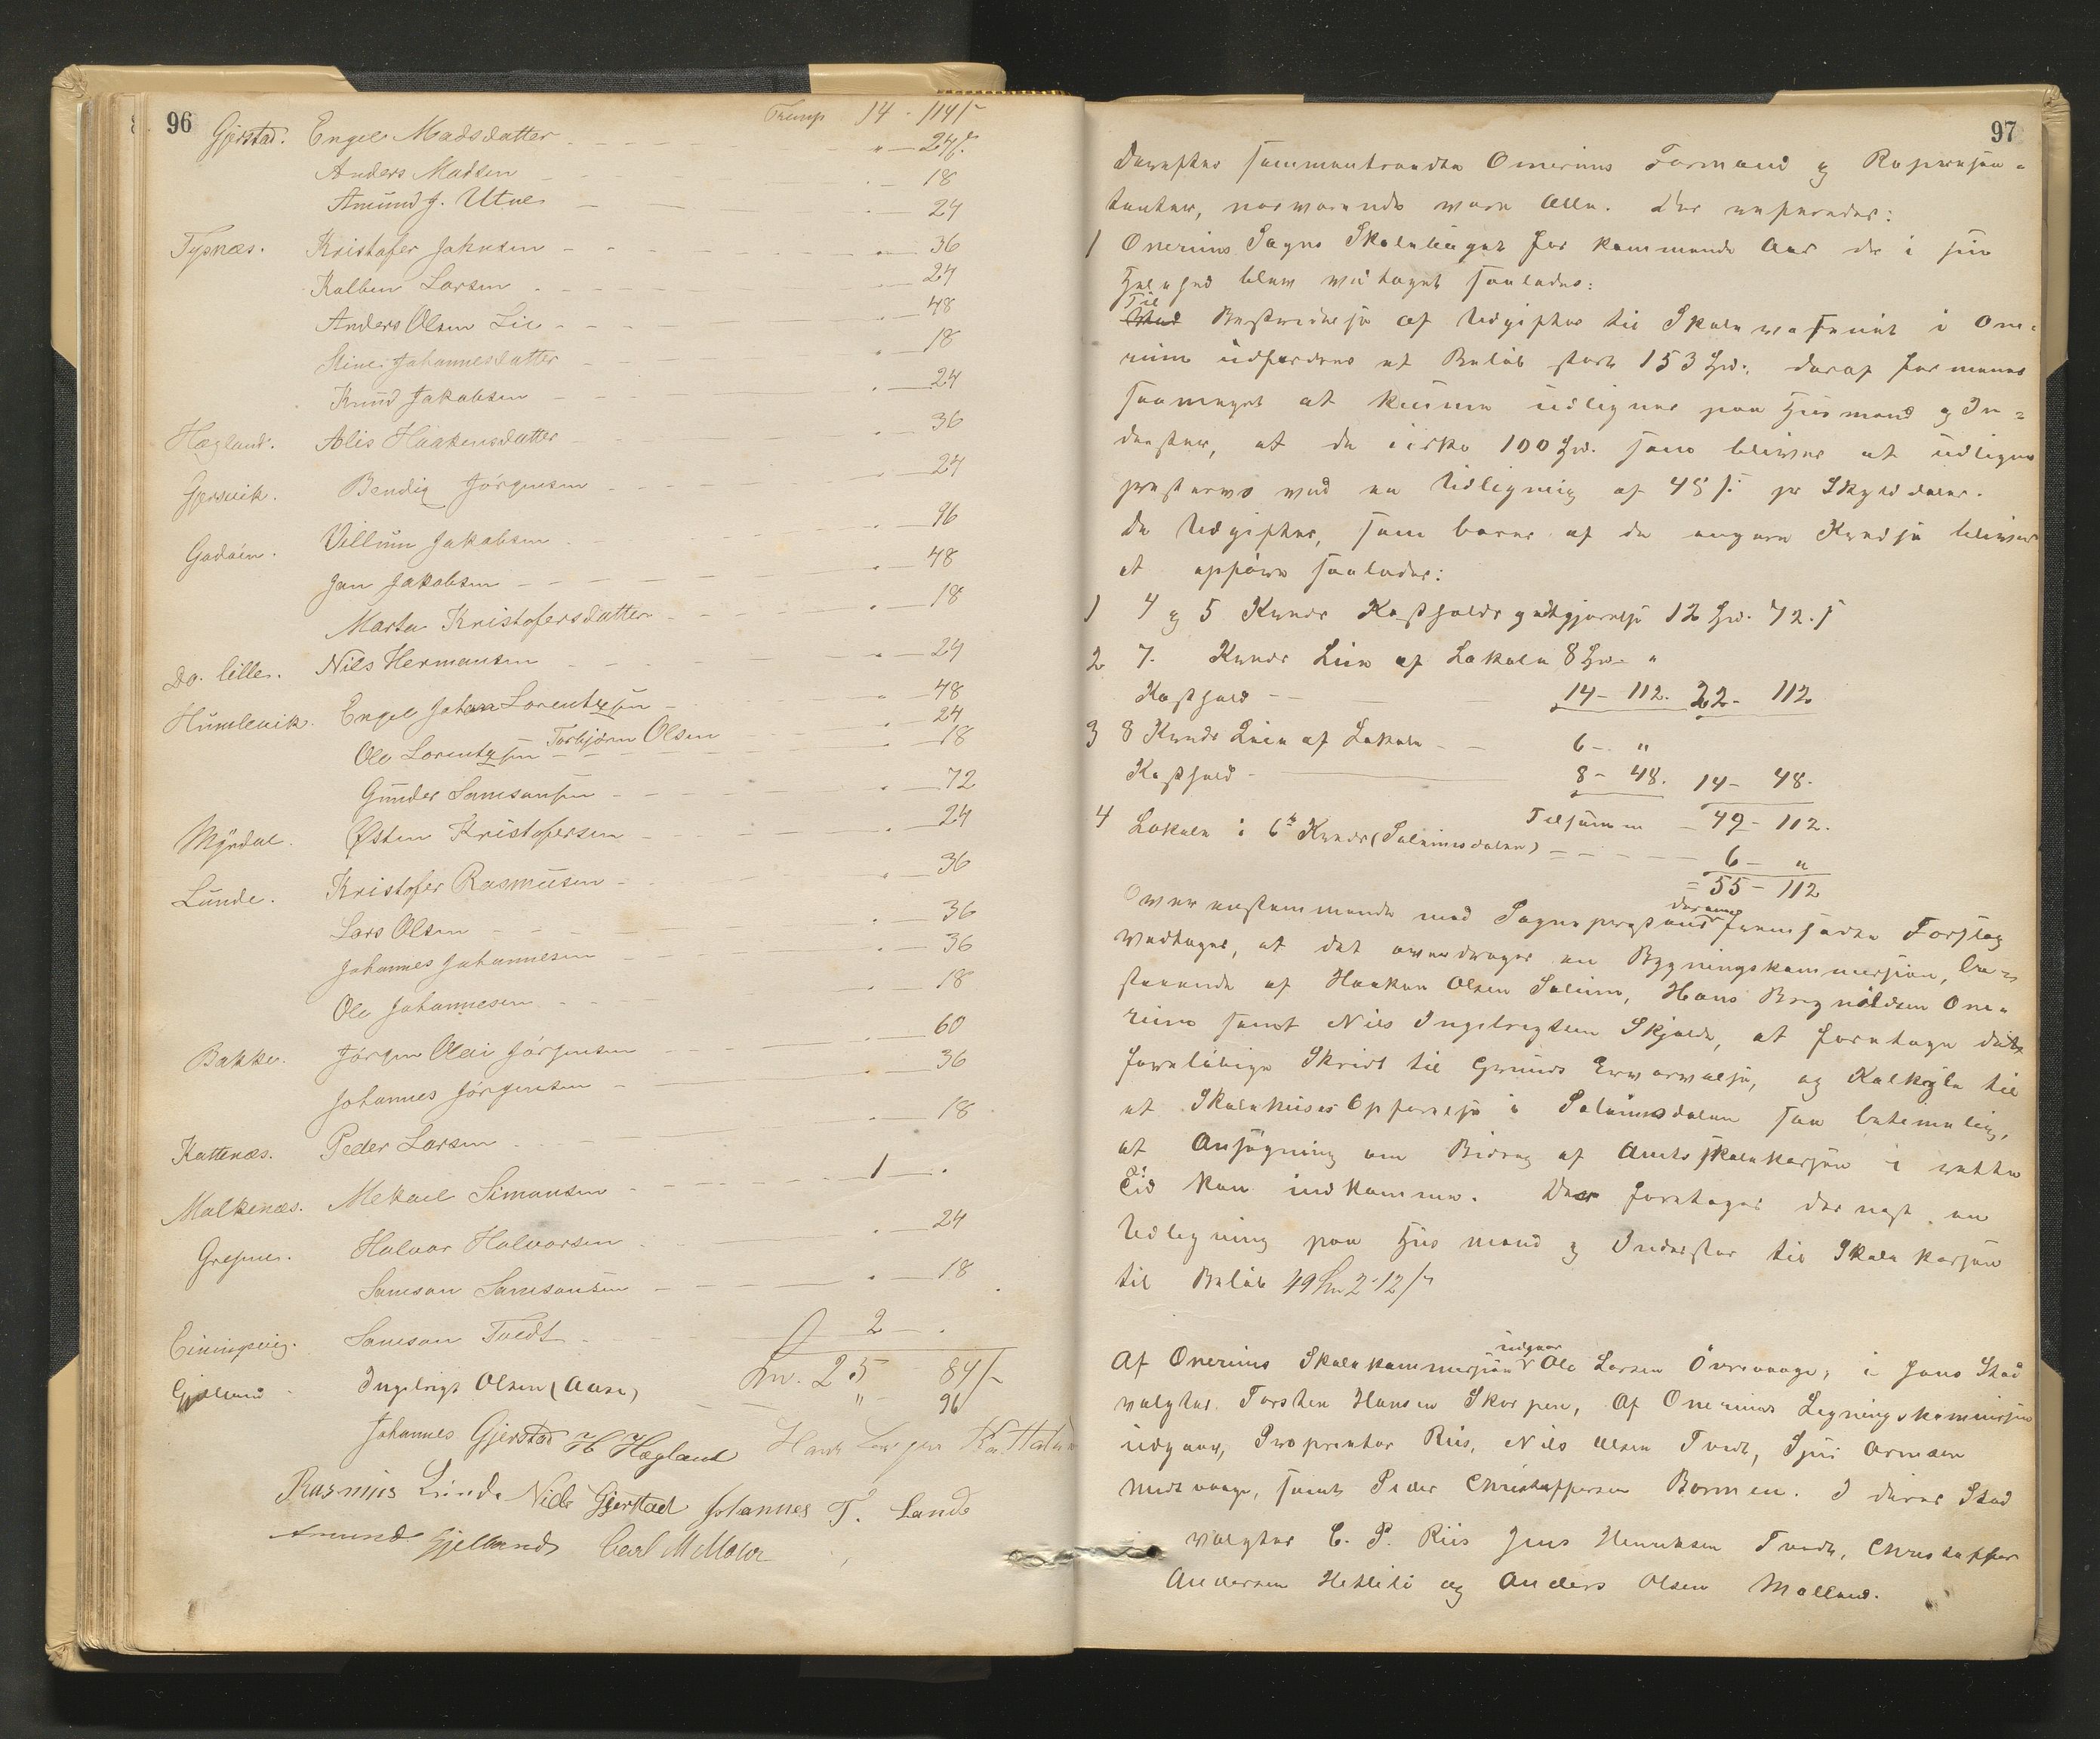 96
Tramp 14 - 114 ſ
Gjerstad. Engel Madsdatter " 24 ſ.
Anders Madsen 18
Amund J. Utne 24
Tysnæs. Kristofer Johnsen 36
Kolben Larsen 24
Anders Olsen Lie 48
Stine Johannesdatter 18
Knud Jakobsen 24
Hægland. Alis Haakensdatter 36
Gjersvik. Bendig Jörgensen 24
Godöen. Villum Jakobsen 96
Jan Jakobsen 48
Marta Kristofersdatter 18
Do. lille. Nils Hermansen 24
Humlevik. Engel Johan Lorentzsen 48
Ole Lorentzsen 24
Torbjörn Olsen 18
Gunder Samsonsen 72
Myrdal. Østen Kristofersen 24
Lunde. Kristofer Rasmusen 36
Lars Olsen 36
Johannes Johannesen 36
Ole Johannesen 18
Bakke. Jörgen Olai Jörgensen 60
Johannes Jörgensen 36
Kattenæs. Peder Larsen 18
Malkenæs. Mekael Simonsen 1 -
Halvor Halvorsen 24
Samson Samsonsen 18
Samson Tvedt 2 -
Ingebrigt Olsen (Aase) 25 84 ſ
" 96
Johannes Gjerstad H Hægland
Rasmus Lunde Nils Gjerstad Johannes T. Lande
Amund Gjelland Carl M Mohr
97
Derefter sammentraadte Onerims Formænd og Repræsen-
tanter, nærværende vare Alle. Der refereres:
1 Onerims Sogns Skolebudget for kommende Aar der i sin
Helhed blev vedtaget saaledes:
Til
Bestridelse af Udgifter til Skolevæsenet i One-
rim udfordres et Belöb stort 153 Spd., deraf formenes
saameget at kunne udlignes paa Husmænd og In-
derster, at de cirka 100 Spd. som bliver at udligne
præsteres ved en Udligning af 48 ſ: pr Skylddaler.
De Udgifter, som bæres af de engere Kredse bliver
at opföre saaledes:
1 4 og 5 Kreds Kostholds godtgjörelse 12 Spd. 72. ſ
2 7. Kreds Leie af Lokale 8 Spd - "
Kosthold 14 - 112. 22 - 112
3 8 Kreds Leie af Lokale 6 - "
Kosthold 8 - 48. 14 - 48.
Tilsammen 49 - 112.
4 Lokale i 6te Kreds (Saleimsdalen) 6 - "
= 55 - 112
derom
Overensstemmende med Sognepræstens fremsatte Forslag
vedtages, at det overdrages en Bygningskommission, be-
staaende af Haakon Olsen Saleim, Hans Brynildsen One-
rim samt Nils Ingebrigtsen Skjelde, at foretage det
forelöbige Skridt til Grunds Erværvelse, og Kalkyle til
et Skolehuses Opförelse i Saleimsdalen saa betimelig,
at Ansögning om Bidrag af Amtsskolekassen i rette
Tid kan indkomme. Der foretages dernæst en
Udligning paa Husmænd og Inderster til Skolekassen
til Belöb 49 Spd 2-12 ſ
udgaar
Af Onerims Skolekommission Ole Larsen Övrevaage, i hans Sted
valgtes Torsten Hansen Skorpen, Af Onerims Ligningskommission
udgaar, Proprietær Riis, Nils Olsen Tvedt, Sjur Ormsen
Nedrevaage, samt Peder Christoffersen Bormen. I deres Sted
valgtes C. P. Riis Jens Henriksen Tvedt, Christoffer
Andersen Hetleli og Anders Olsen Malland.